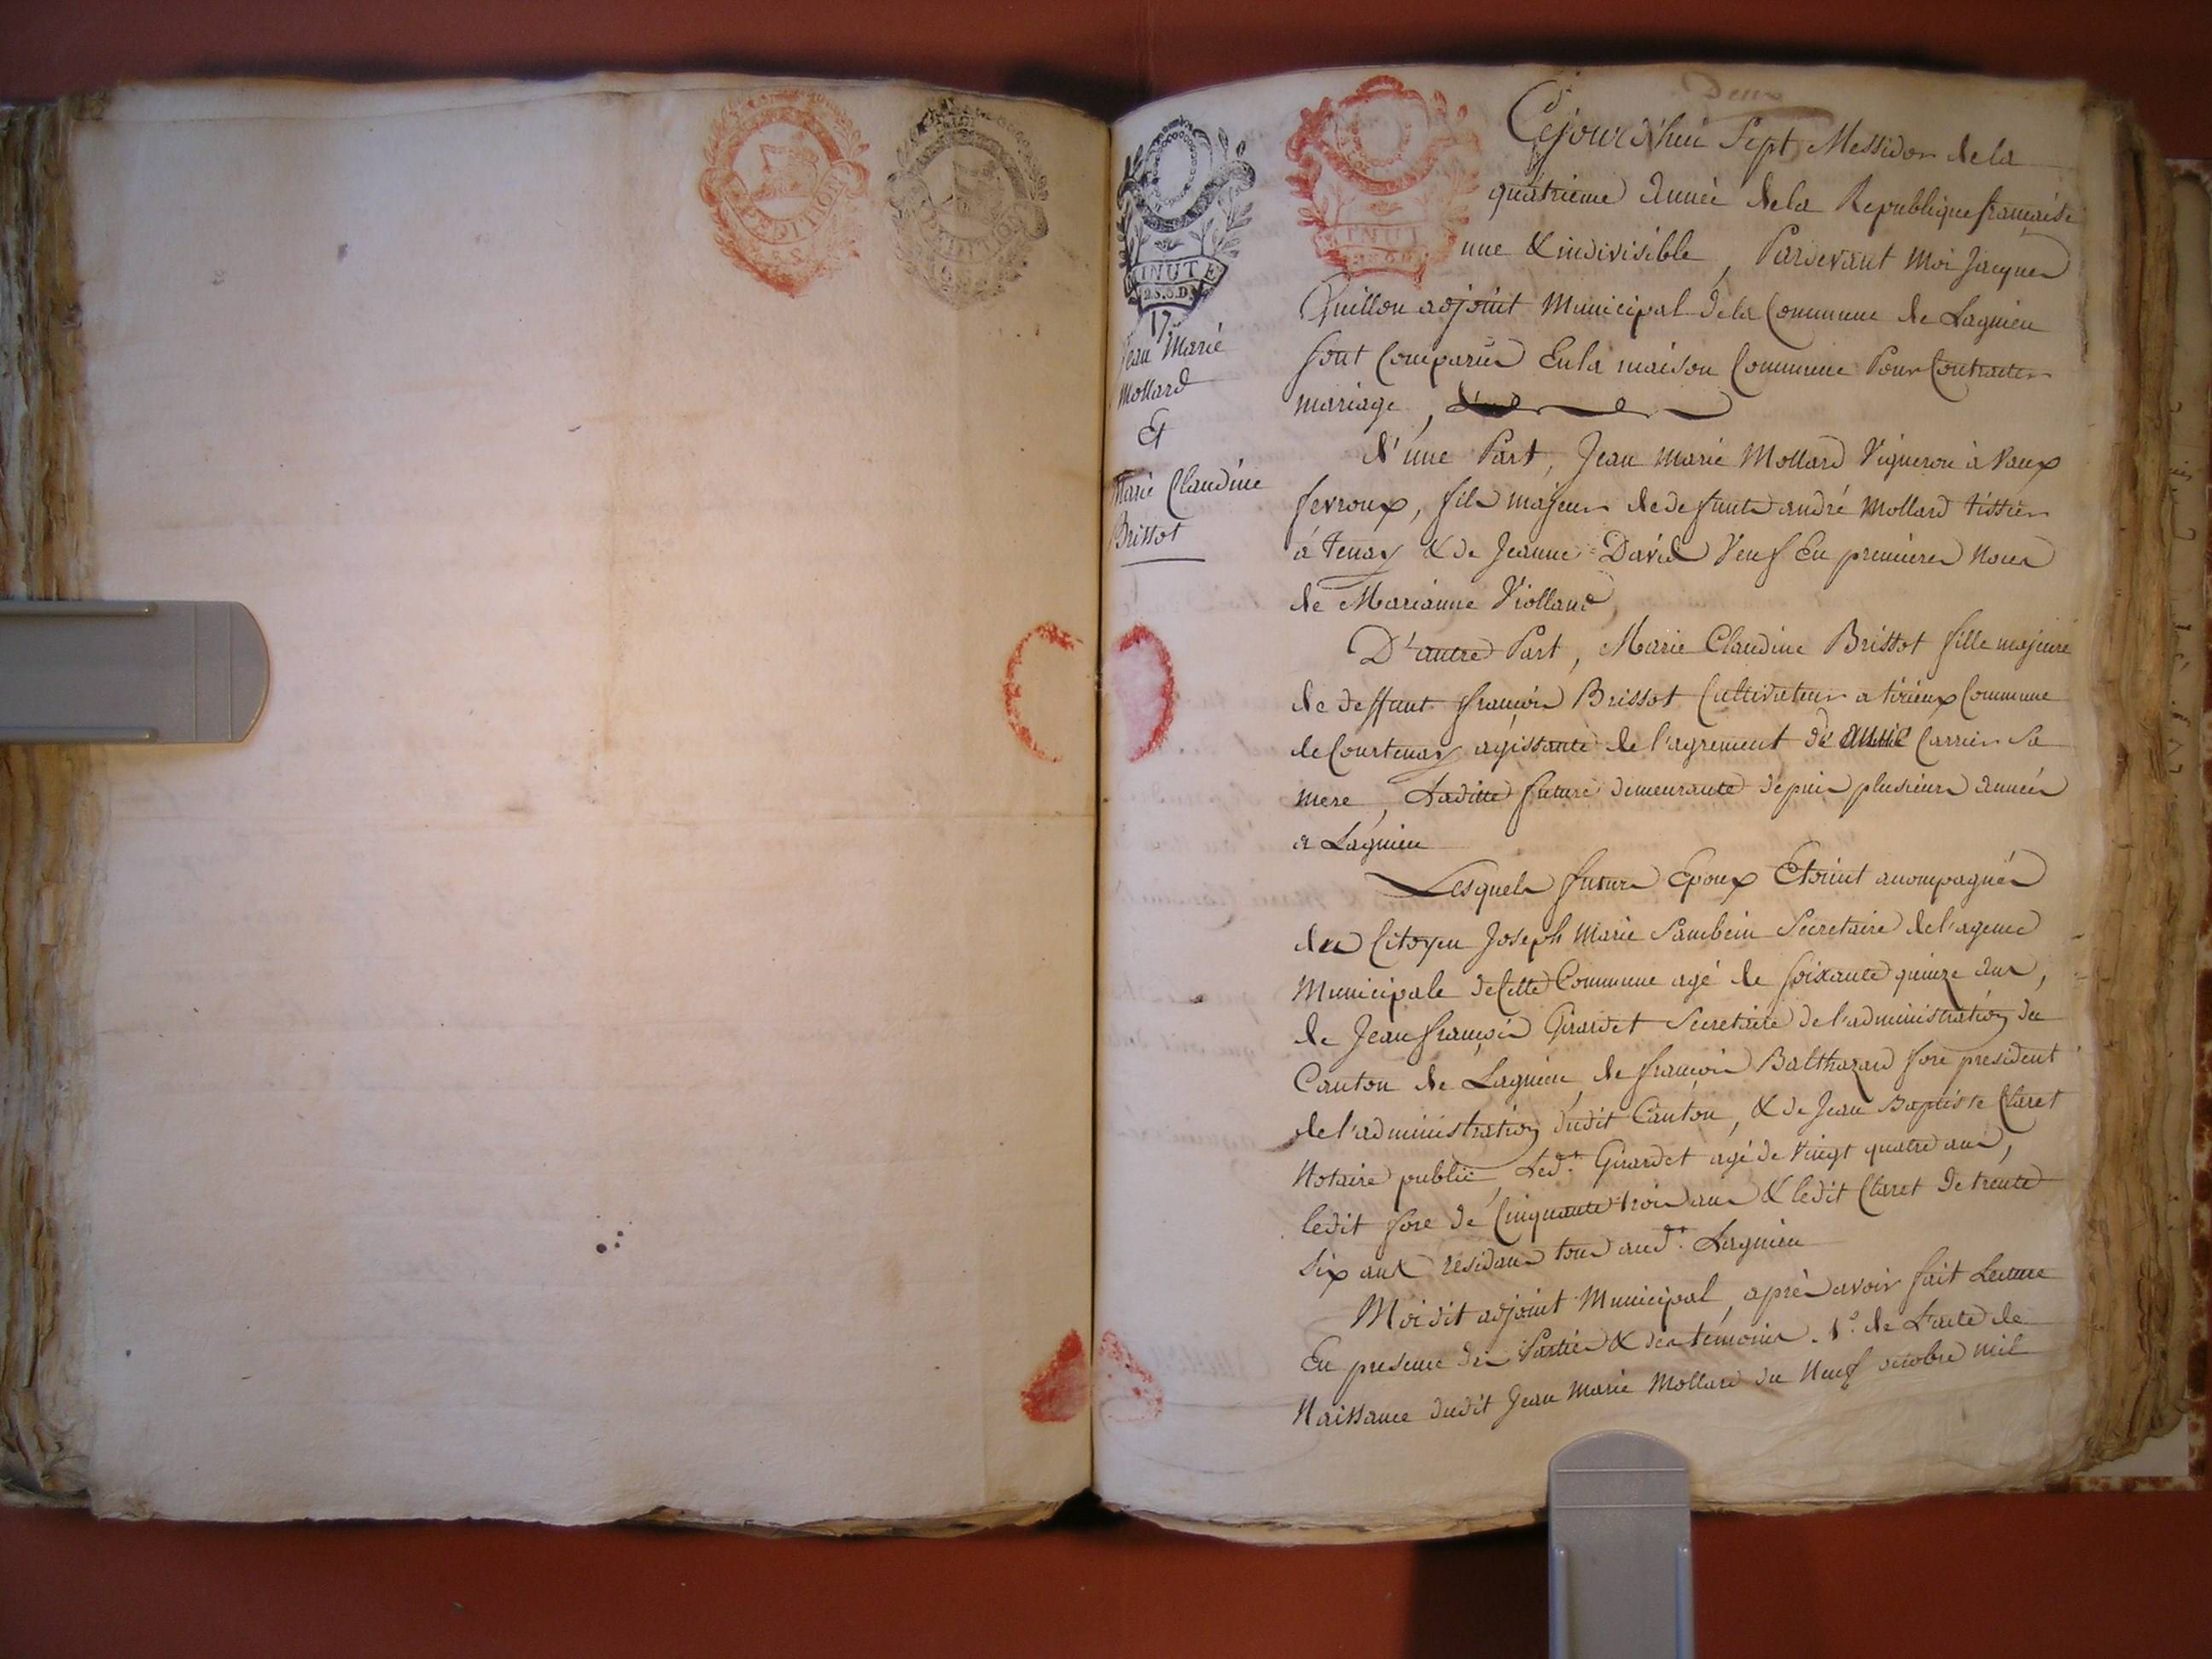 Deux
MINUTE
2S.5.D
17.
Jean Marie
Mollard
Et
Marie Claudine
Brissot
Cejourd'hui Sept Messidor de la
quatrieme année dela Republique francaise
une & indivisible, Pardevant moi Jacques
Quillon adjoint Municipal dela Commune de Lagnieu
sont Comparus En la maison Commune Pour Contracter
mariage,
d'une Part, Jean marie Mollard Vigneron à Vaux
fevroux, fils majeur de defunt andré Mollard tissier
à tenay & de Jeanne David Veuf En premieres noces
de Marianne Violland,
D'autre Part, Marie Claudine Brissot fille majeure
de deffunt françois Brissot Cultivateur a tirieux Commune
de Courtenay agissante de l'agrement de Carrier Sa
mere, Laditte future demeurante depuis plusieurs années
a Lagnieu
Lesquels futurs Epoux Etoint acompagnés
du Citoyen Joseph Marie Sambein Secretaire del'agence
Municipale de Cette Commune agé de soixante quinze ans,
de Jean françois Girardet Secretaire de l'administration du
Canton de Lagnieu, de françois Balthazard fore president
del'administration dudit Canton, & de Jean Baptiste Claret
Notaire public, Led.t Girardet agé de Vingt quatre ans,
ledit fore de Cinquante trois ans & ledit Claret de trente
six ans residans tous aud.t Lagnieu
Moi dit adjoint Municipal, après avoir fait Lecture
En presence des Parties & des témoins. 1.° de L'acte de
Naissance dudit Jean Marie Mollard du Neuf octobre mil